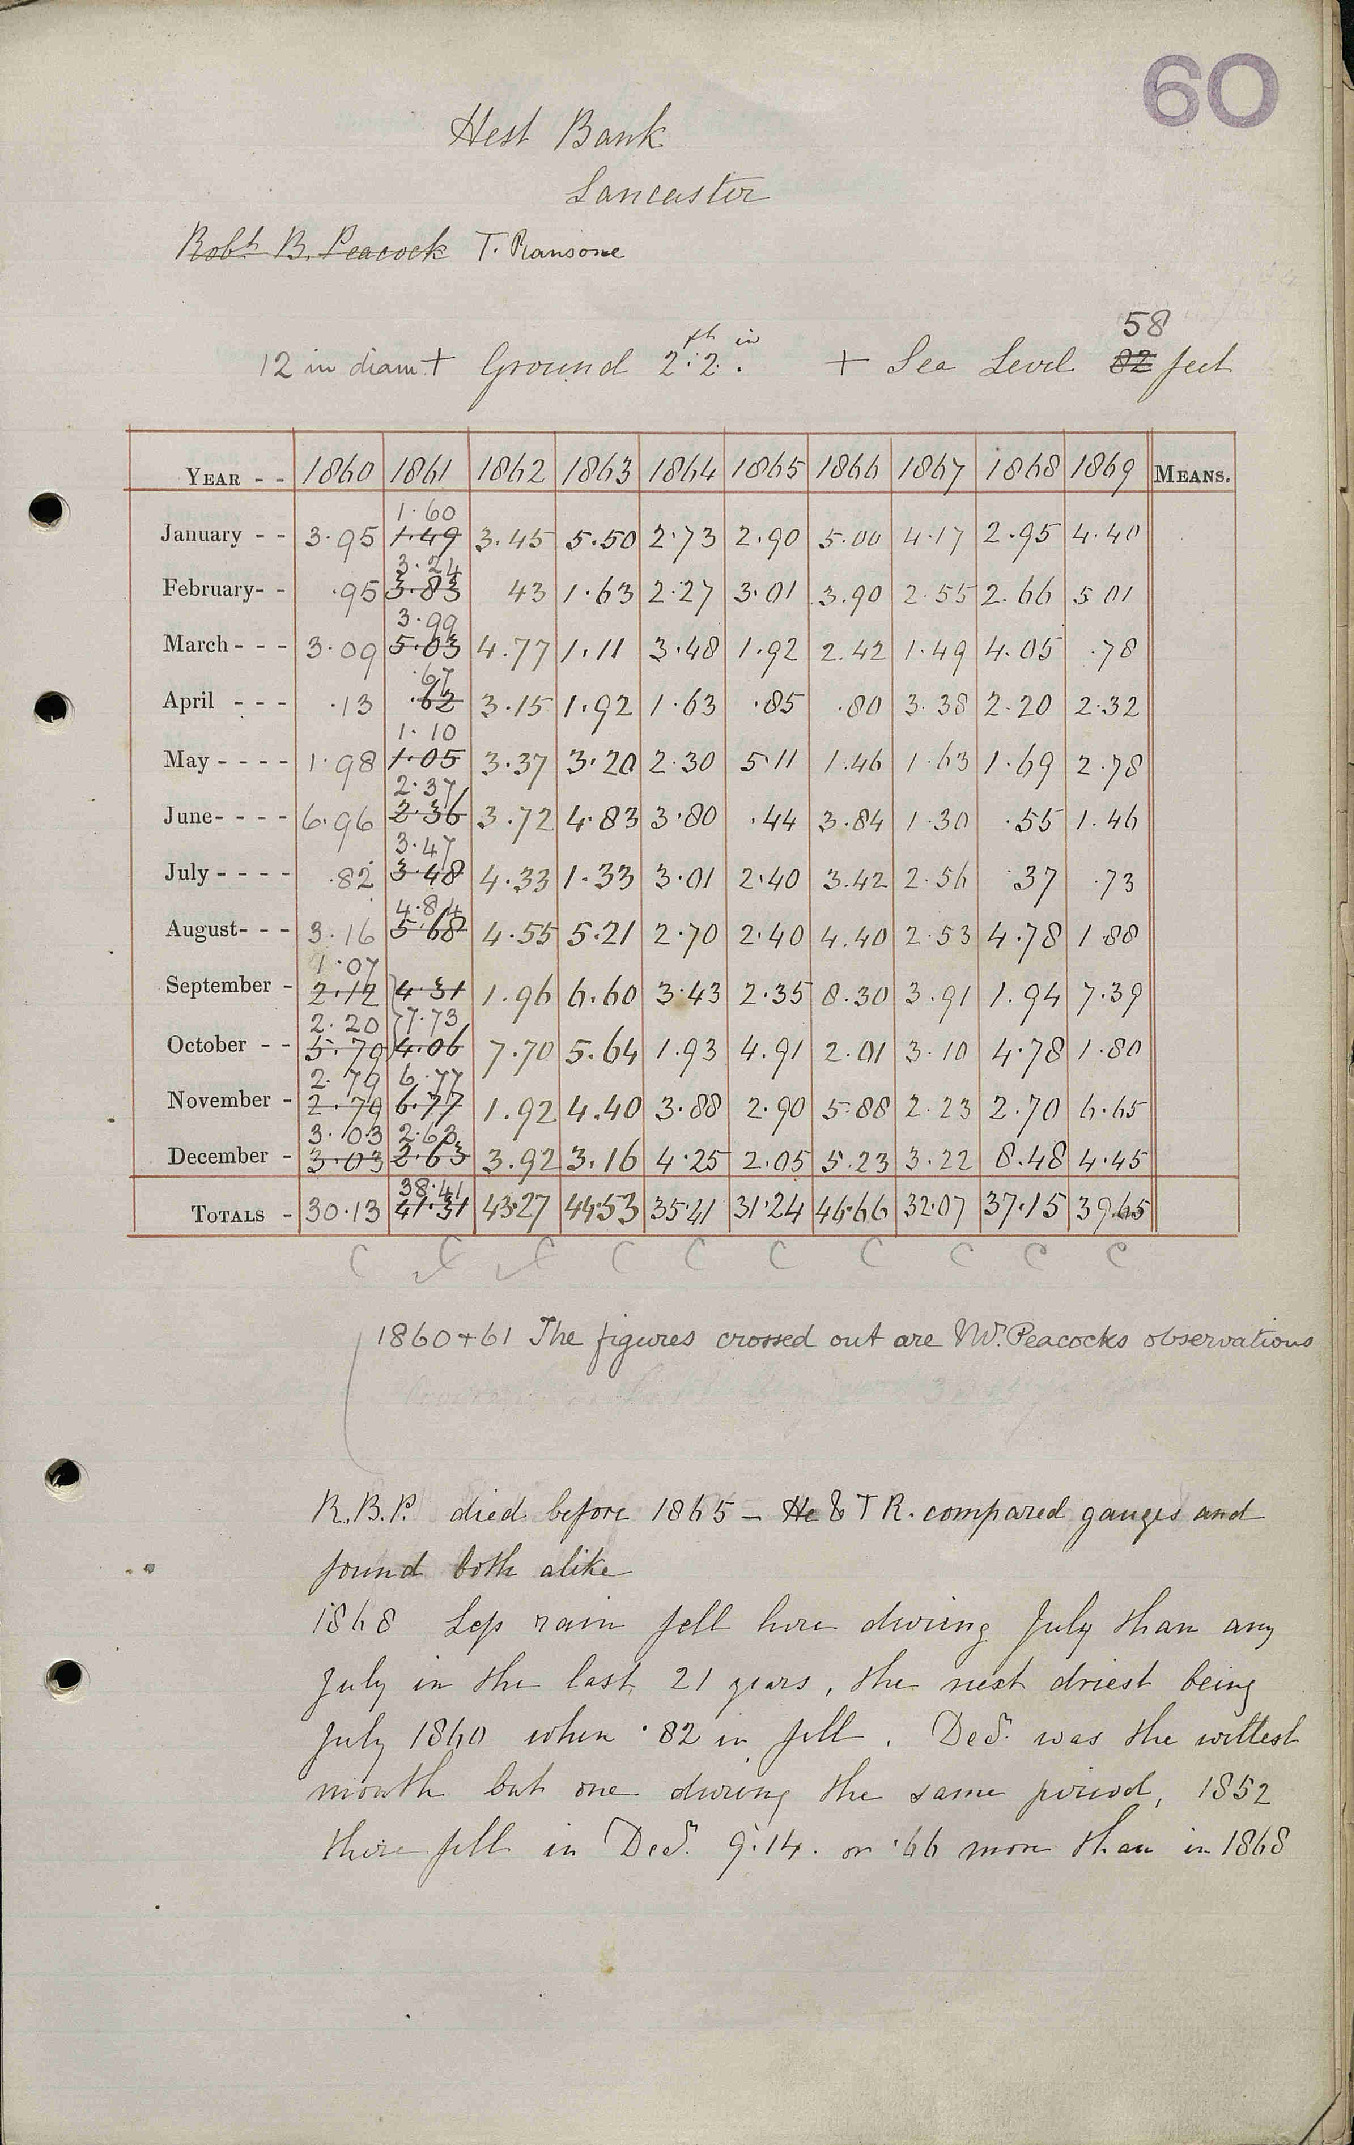 60
Hest Bank
Lancaster
Robt. B. Peacock T. Ransome
58
12 in diam + Ground 2ft. 2in. + Sea Level 82 feet
YEAR - - 1860 1861 1862 1863 1864 1865 1866 1867 1868 1869 MEANS.
1.60
January - - 3.95 1.49 3.45 5.50 2.73 2.90 5.00 4.17 2.95 4.40
3.24
February- - .95 3.83 43 1.63 2.27 3.01 3.90 2.55 2.66 5.01
3.99
March - - - 3.09 5.03 4.77 1.11 3.48 1.92 2.42 1.49 4.05 .78
.67
April - - - .13 .62 3.15 1.92 1.63 .85 .80 3.38 2.20 2.32
1.10
May - - - - 1.98 1.05 3.37 3.20 2.30 5.11 1.46 1.63 1.69 2.78
2.37
June- - - - 6.96 2.36 3.72 4.83 3.80 .44 3.84 1.30 .55 1.46
3.47
July - - - - .82 3.48 4.33 1.33 3.01 2.40 3.42 2.56 37 .73
4.84
August- - - 3.16 5.68 4.55 5.21 2.70 2.40 4.40 2.53 4.78 1.88
1.07
September - 2.12 4.31 1.96 6.60 3.43 2.35 8.30 3.91 1.94 7.39
2.20 7.73
October - - 5.70 4.06 7.70 5.64 1.93 4.91 2.01 3.10 4.78 1.80
2.79 6.77
November - 2.79 6.77 1.92 4.40 3.88 2.90 5.88 2.23 2.70 6.65
3.03 2.63
December - 3.03 2.63 3.92 3.16 4.25 2.05 5.23 3.22 8.48 4.45
38.41
TOTALS - 30.13 41.31 43.27 44.53 35.41 31.24 46.66 32.07 37.15 39.65
C C C C C C C C
1860+61 The figures crossed out are Mr. Peacocks observations
R.B.P. died before 1865 - He & T R. compared gauges and
found both alike
1868 Less rain fell here during July than any
July in the last 21 years, the next driest being
July 1860 when .82 in fell. Decr. was the wettest
month but one during the same period, 1852
there fell in Decr. 9.14. or .66 more than in 1868